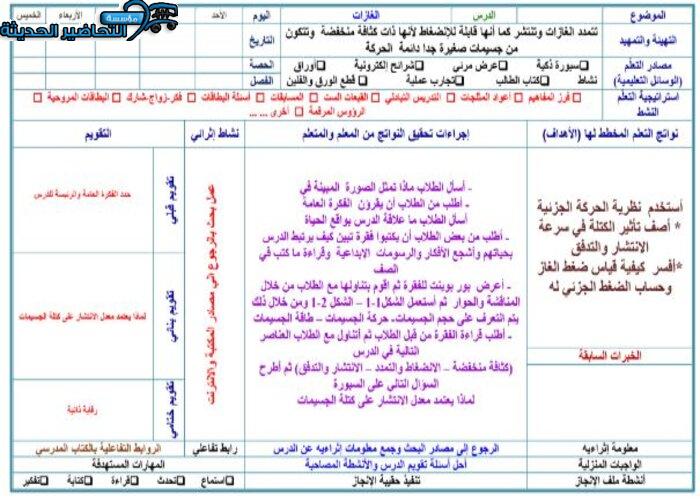 مؤسسة التحاضير الحديثة
الموضوع الدرس الغازات اليوم الاحد الأربعاء الخميس
التهيئة والتمهيد
تتمدد الغازات وتنتشر كما أنها قابلة للانضغاط لأنها ذات كثافة منخفضة وتتكون
من جسيمات صغيرة جدا دائمة الحركة
التاريخ
مصادر التعلم
(الوسائل التعليمية)
□سبورة ذكية □عرض مرئي □شرائح إلكترونية □أوراق
نشاط □كتاب الطالب □تجارب عملية □ قطع الورق والفلين
الحصة
الفصل
استراتيجية التعلم
النشط
□ فرز المفاهيم □ أعواد المثلجات □ التدريس التبادلي □ القبعات الست □ المسابقات □ أسئلة البطاقات □ فكر-زواج-شارك □ البطاقات المروحية
□ الرؤوس المرقمة □ أخرى ... ...
نواتج التعلم المخطط لها (الأهداف) إجراءات تحقيق النواتج من المعلم والمتعلم نشاط إثرائي التقويم
أستخدم نظرية الحركة الجزئية
* أصف تأثير الكتلة في سرعة
الانتشار والتدفق
*أفسر كيفية قياس ضغط الغاز
وحساب الضغط الجزئي له
الخبرات السابقة
- أسأل الطلاب ماذا تمثل الصورة المبينة في
- أطلب من الطلاب أن يقرؤن الفكرة العامة
أسأل الطلاب ما علاقة الدرس بواقع الحياة
- أطلب من بعض الطلاب أن يكتبوا فقرة تبين كيف يرتبط الدرس
بحياتهم وأشجع الأفكار والرسومات الإبداعية وقراءة ما كتب في
الصف
- أعرض بور بوينت للفقرة ثم اقوم بتناولها مع الطلاب من خلال
المناقشة والحوار ثم أستعمل الشكل1-1 – الشكل 2-1 ومن خلال ذلك
يتم التعرف على حجم الجسيمات- حركة الجسيمات – طاقة الجسيمات
- أطلب قراءة الفقرة من قبل الطلاب ثم أتناول مع الطلاب العناصر
التالية في الدرس
(كثافة منخفضة – الانضغاط والتمدد – الانتشار والتدفق) ثم أطرح
السؤال التالي على السبورة
لماذا يعتمد معدل الانتشار على كتلة الجسيمات
عمل بحث بالرجوع إلى مصادر المكتبة والانترنت
تقويم قبلي
حدد الفكرة العامة والرئيسة للدرس
تقويم بنائي
لماذا يعتمد معدل الانتشار على كتلة الجسيمات
تقويم ختامي
رقابة ذاتية
معلومة إثراءيه الرجوع إلى مصادر البحث وجمع معلومات إثراءيه عن الدرس رابط تفاعلي الروابط التفاعلية بالكتاب المدرسي
الواجبات المنزلية أحل أسئلة تقويم الدرس والأنشطة المصاحبة المهارات المستهدفة
أنشطة ملف الإنجاز تنفيذ حقيبة الإنجاز □ استماع □تحدث □قراءة □كتابة □تفكير